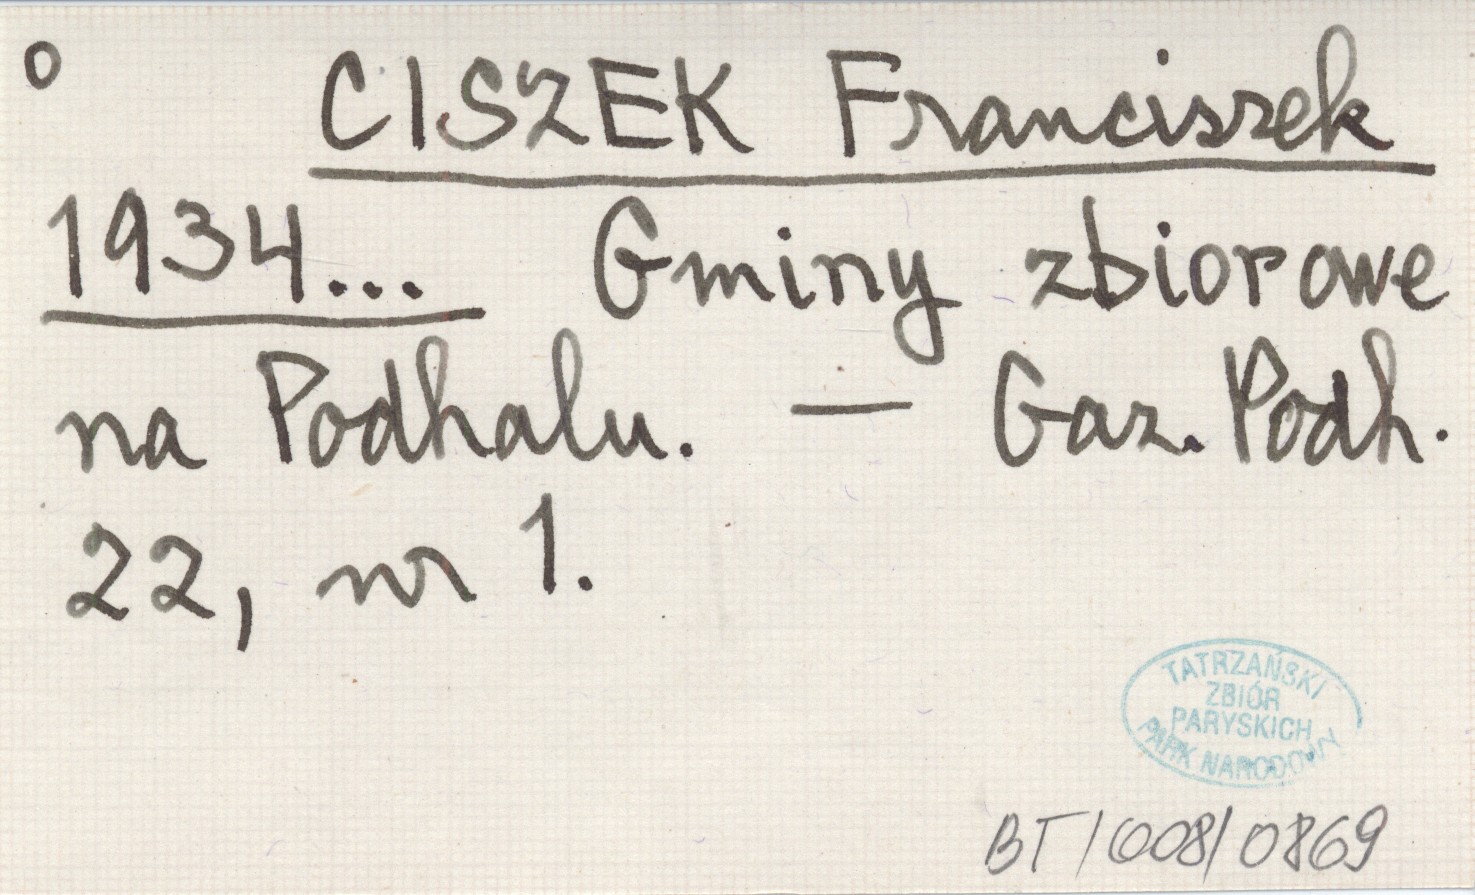 o CISZEK Franciszek
1934... Gminy zbiorowe
na Podhalu. — Gaz. Podh.
22, nr 1.
TATRZAŃSKI
ZBIÓR
PARYSKICH
PARK NARODOWY
BT/008/0869